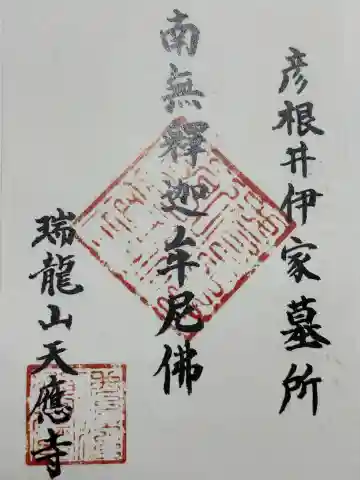 彦根井伊家墓所
南無釋迦牟尼佛
瑞龍山天應寺